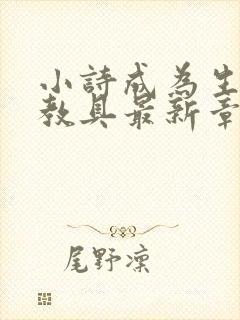 小詩成為生
教具最新章
尾野凜